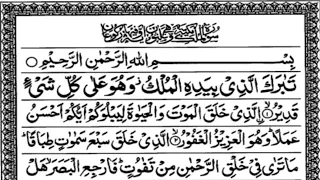 بِسْمِ اللهِ الرَّحْمٰنِ الرَّحِيْمِ
تَبٰرَكَ الَّذِىْ بِيَدِهِ الْمُلْكُ وَهُوَ عَلٰى كُلِّ شَىْءٍ
قَدِيْرُ ۙ الَّذِىْ خَلَقَ الْمَوْتَ وَالْحَيٰوةَ لِيَبْلُوَكُمْ اَيُّكُمْ اَحْسَنُ
عَمَلًا ؕ وَهُوَ الْعَزِيْزُ الْغَفُوْرُ ۙ الَّذِىْ خَلَقَ سَبْعَ سَمٰوٰتٍ طِبَاقًا ؕ
مَا تَرٰى فِىْ خَلْقِ الرَّحْمٰنِ مِنْ تَفٰوُتٍ ؕ فَارْجِعِ الْبَصَرَ ۙ هَلْ